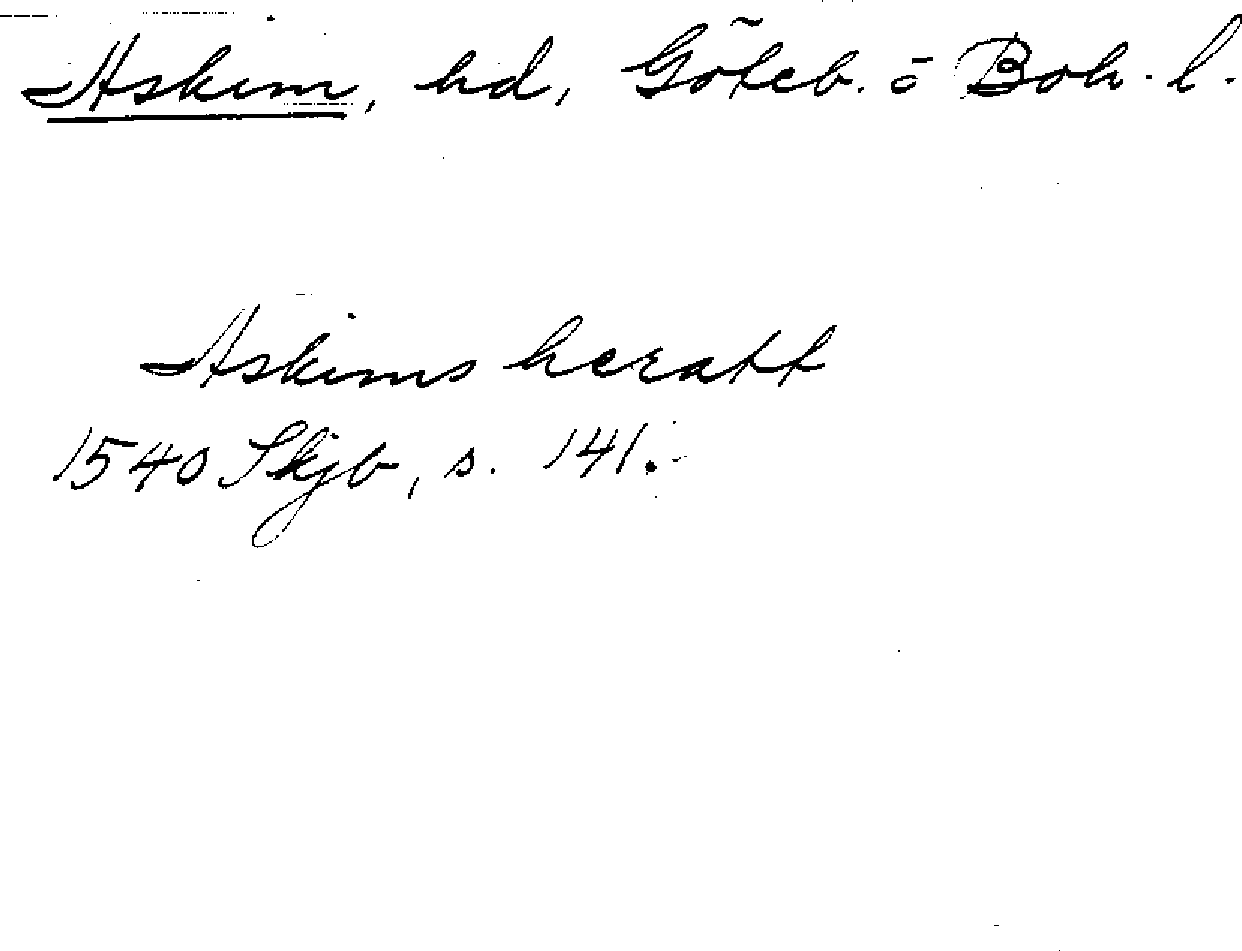 Askim, hd, Göteb. o Boh. l.
Askims heratt
1540 Skjb, s. 141.